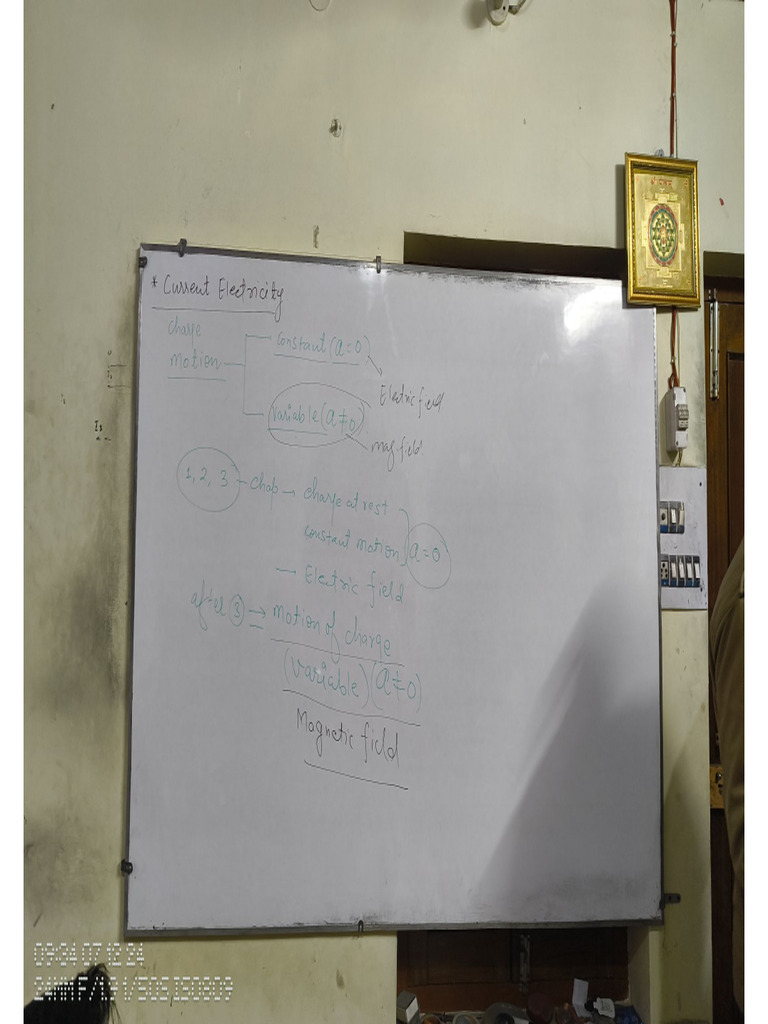 * Current Electricity
charge
motion
constant (a=0)
Electric field
variable (a≠0)
mag. field.
1, 2, 3 - chap → charge at rest
constant motion
a=0
→ Electric field
after 3 → motion of charge
(variable) (a≠0)
Magnetic field